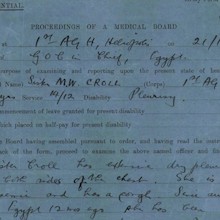 ENTIAL
PROCEEDINGS OF A MEDICAL BOARD
1st AGH, Heliopolis on 21/1
G O C in Chief, Egypt
purpose of examining and reporting upon the present state of hea
Name) Sister M.W. CROLL (Corps) 1st AG
Service 14/12 Disability Pleurisy
commencement of leave granted for present disability
which placed on half-pay for present disability
Board having assembled pursuant to order, and having read the instr
back of the form, proceed to examine the above named officer and
Croll has extensive dry pleu
both sides of the chest She is
and has a cough
Egypt 12 mos ago she has been